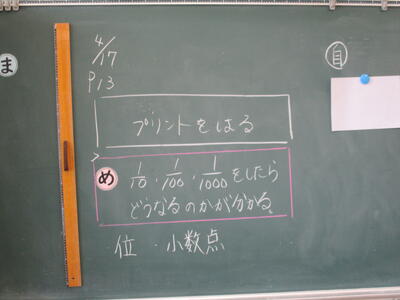 ま
4/17
P13
プリントをはる
め
1/10, 1/100, 1/1000 をしたら
どうなるのかが分かる。
位・小数点
自